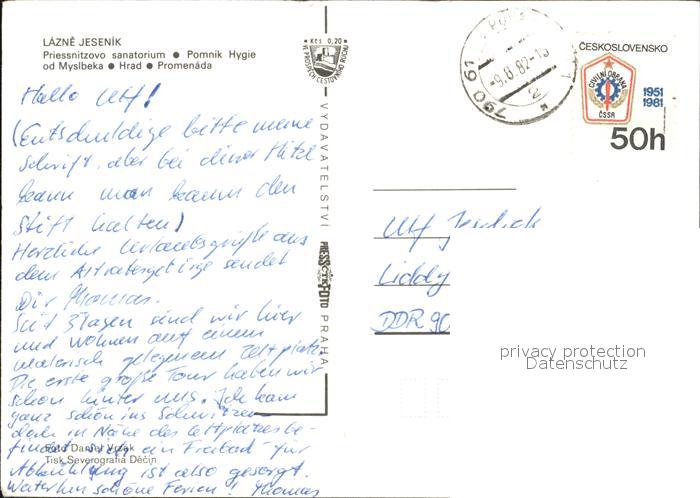 LÁZNĚ JESENÍK
Priessnitzovo sanatorium ● Pomník Hygie
od Myslbeka ● Hrad ● Promenáda
Hallo Ulf!
(Entschuldige bitte meine
Schrift, aber bei dieser Hitze
kann man kaum den
Stift halten)
Herzliche Urlaubsgrüße aus
dem Altvatergebirge sendet
Dir Thomas.
Seit 3 Tagen sind wir hier
und wohnen auf einem
malerisch gelegenem Zeltplatz.
Die erste große Tour haben wir
schon hinter uns. Ich kam
ganz schön ins Schwitzen
doch in Nähe des Zeltplatzes be-
findet sich ein Freibad - für
Abkühlung ist also gesorgt.
Weiterhin schöne Ferien! Thomas
Foto Daniel
Tisk Severografia Děčín
Kčs 0,20
VE PROSPĚCH CESTOVNÍHO RUCHU
VYDAVATELSTVÍ
PRESSFOTO
PRAHA
790 61
-9.8.82-15
ČESKOSLOVENSKO
CIVILNÍ OBRANA
ČSSR
1951
1981
50h
Ulf
DDR 90
privacy protection
Datenschutz